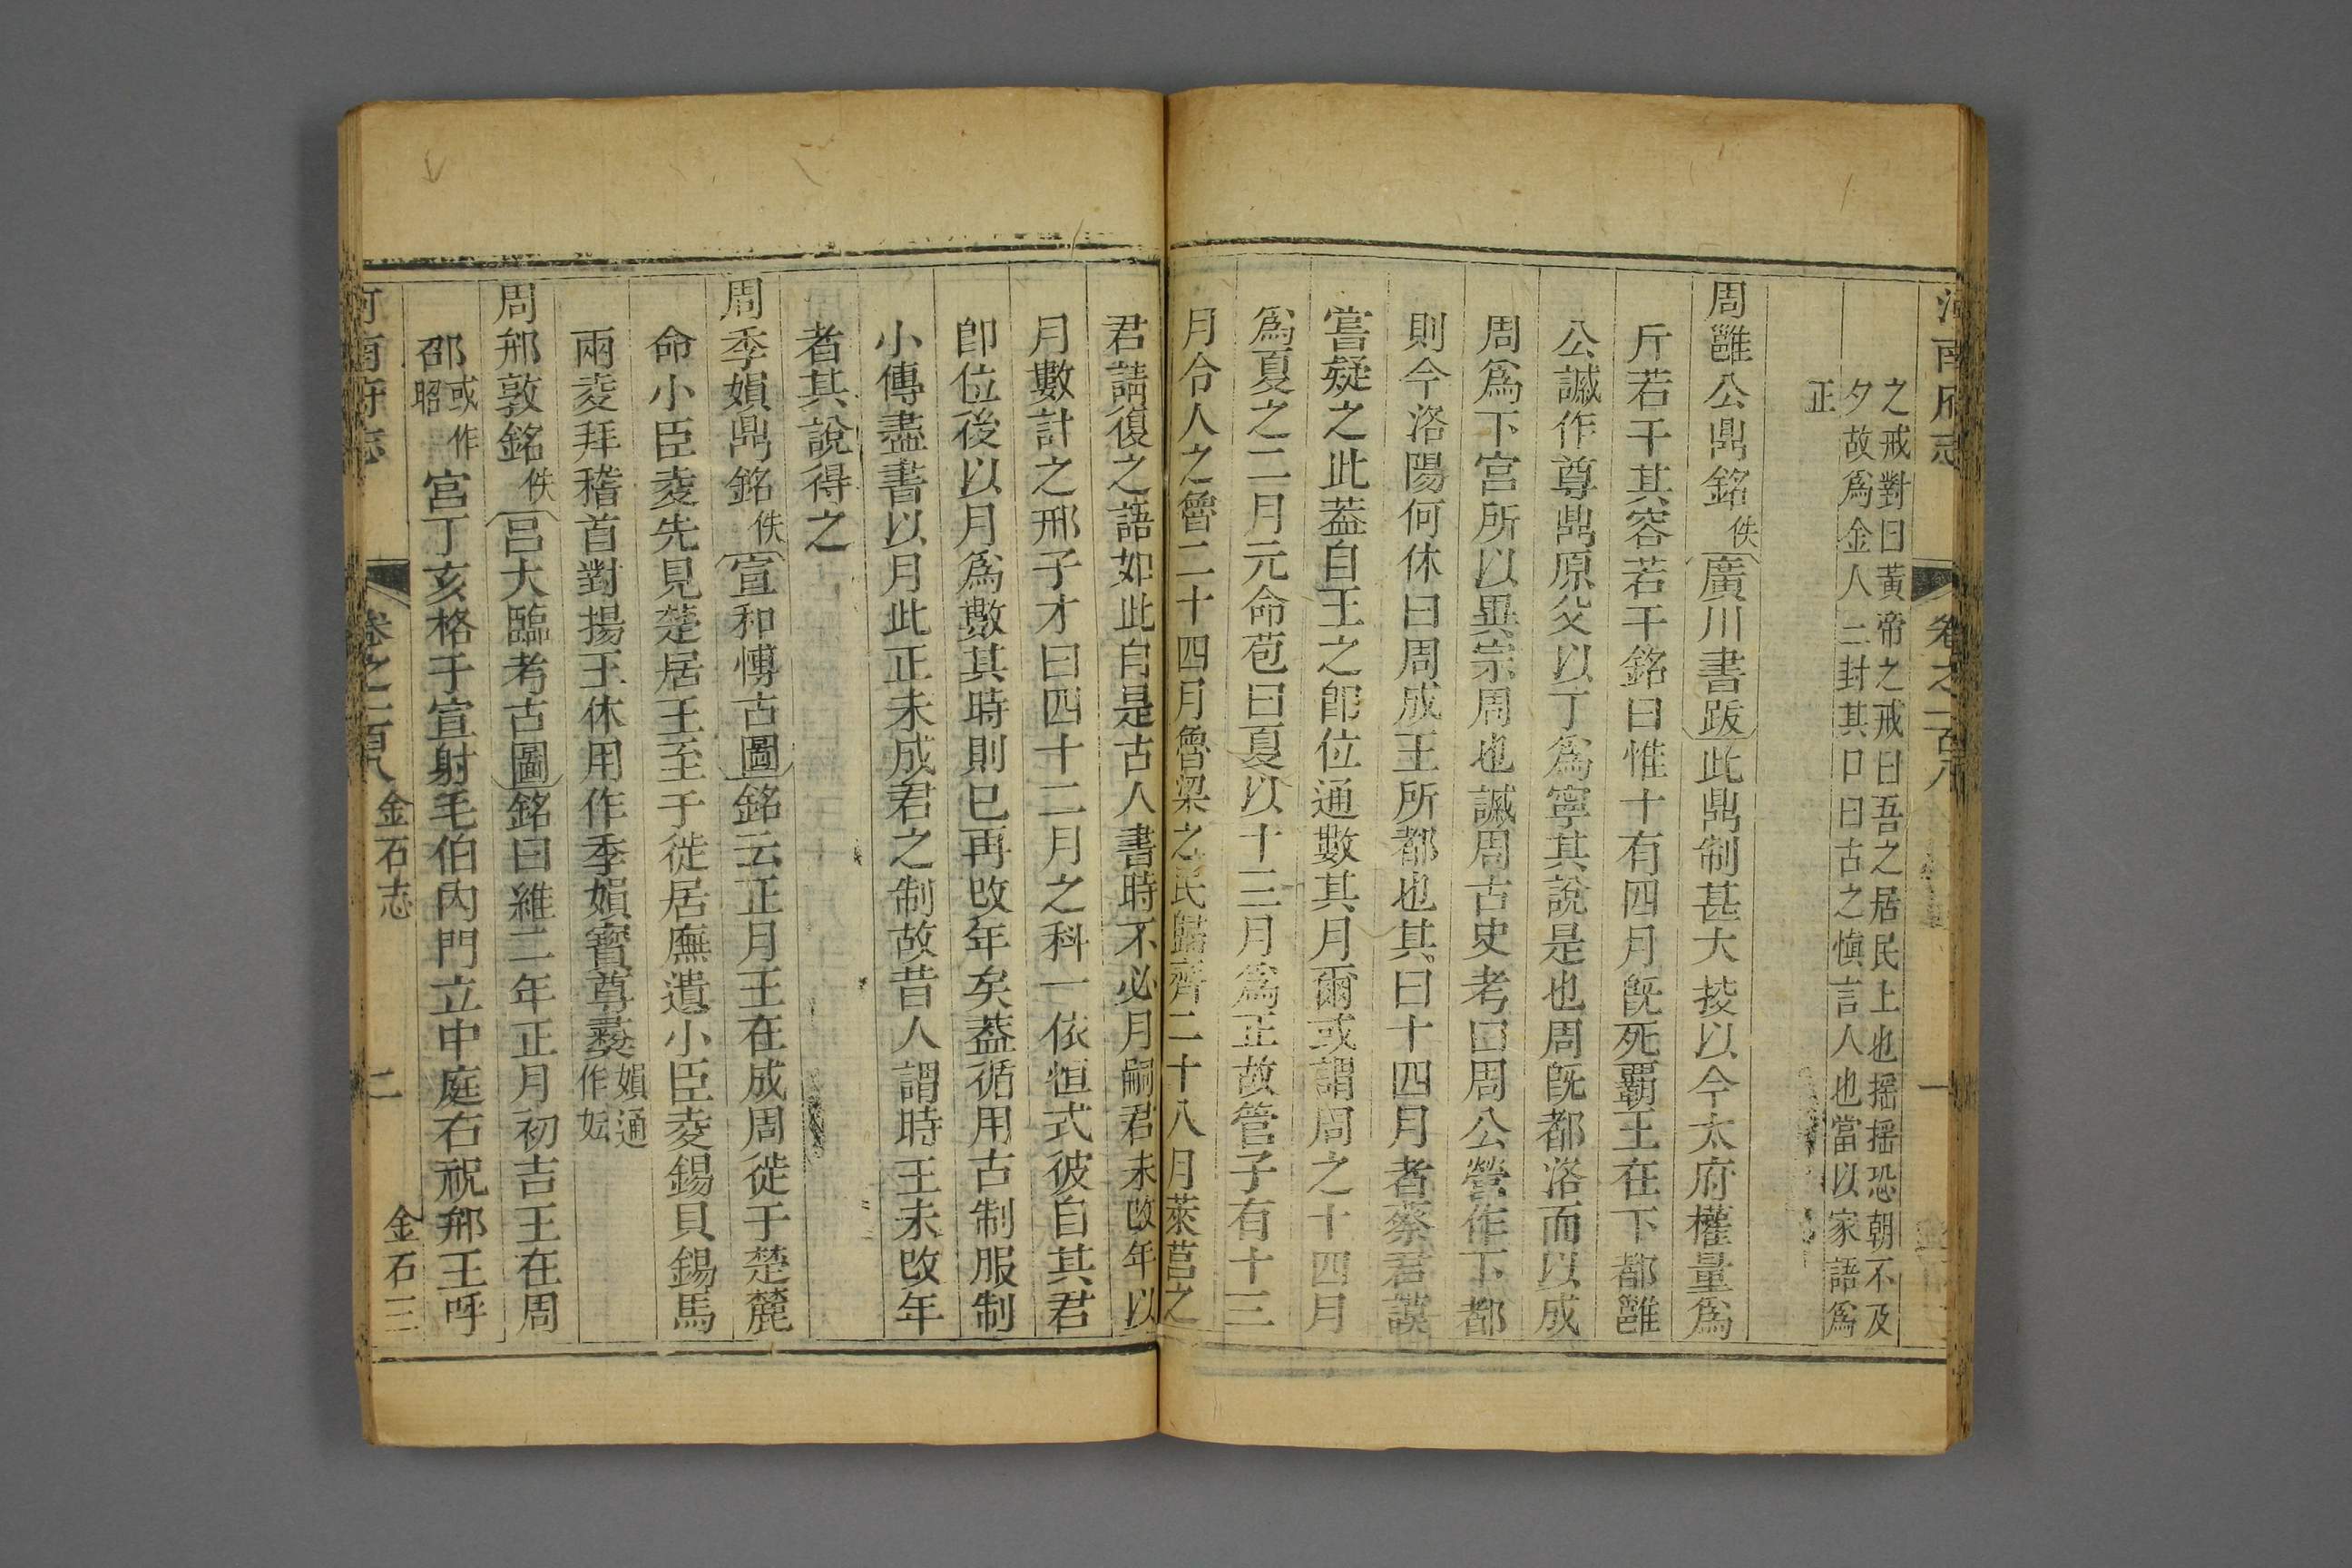 河南府志 卷之一百八 一
之戒對曰黃帝之戒曰吾之居民上也摇摇恐朝不及
夕故爲金人二封其口曰古之愼言人也當以家語爲
正
周雝公鼎銘佚廣川書跋此鼎制甚大挍以今太府權量爲
斤若干其容若干銘曰惟十有四月旣死霸王在下都雝
公諴作尊鼎原父以丁爲寧其說是也周旣都洛而以成
周爲下宮所以異宗周也諴周古史考曰周公營作下都
則今洛陽何休曰周成王所都也其曰十四月者蔡君謨
嘗疑之此葢自王之卽位通數其月爾或謂周之十四月
爲夏之二月元命苞曰夏以十三月爲正故管子有十三
月令人之魯二十四月魯梁之民歸齊二十八月萊莒之
君請復之語如此自是古人書時不必月嗣君未改年以
月數計之邢子才曰四十二月之科一依恒式彼自其君
卽位後以月爲數其時則已再改年矣葢循用古制服制
小傳盡書以月此正未成君之制故昔人謂時王未改年
者其說得之
周季娟鼎銘佚宣和愽古圖銘云正月王在成周徙于楚麓
命小臣夌先見楚居王至于徙居廡遺小臣夌錫貝錫馬
兩夌拜稽首對揚王休用作季娟寶尊彝娟通作妘
周䢵敦銘佚呂大臨考古圖銘曰維二年正月初吉王在周
邵或作昭宮丁亥格于宣射毛伯內門立中庭右祝䢵王呼
河南府志 卷之一百八 金石志 二 金石三